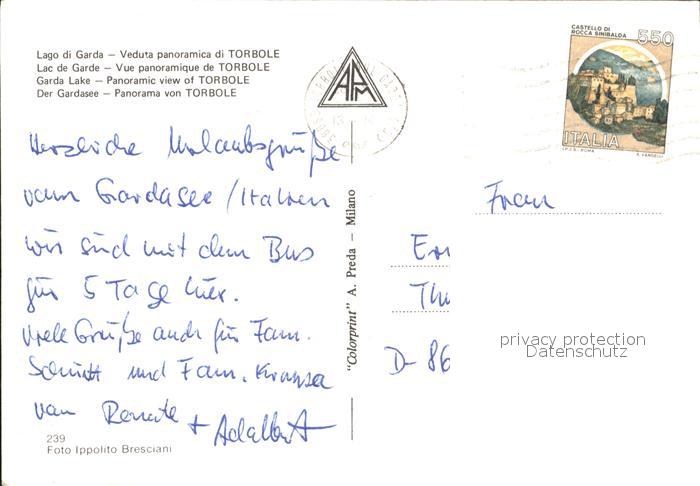 Lago di Garda – Veduta panoramica di TORBOLE
Lac de Garde – Vue panoramique de TORBOLE
Garda Lake – Panoramic view of TORBOLE
Der Gardasee – Panorama von TORBOLE
APM
CASTELLO DI
ROCCA SINIBALDA
550
ITALIA
I.P.Z.S. ROMA
Herzliche Urlaubsgrüße
vom Gardasee / Italien
wir sind mit dem Bus
für 5 Tage hier.
Viele Grüße auch für Fam.
Schmitt und Fam.
von Renate + Adalbert
"Colorprint" A. Preda – Milano
Frau
D-86
privacy protection
Datenschutz
239
Foto Ippolito Bresciani